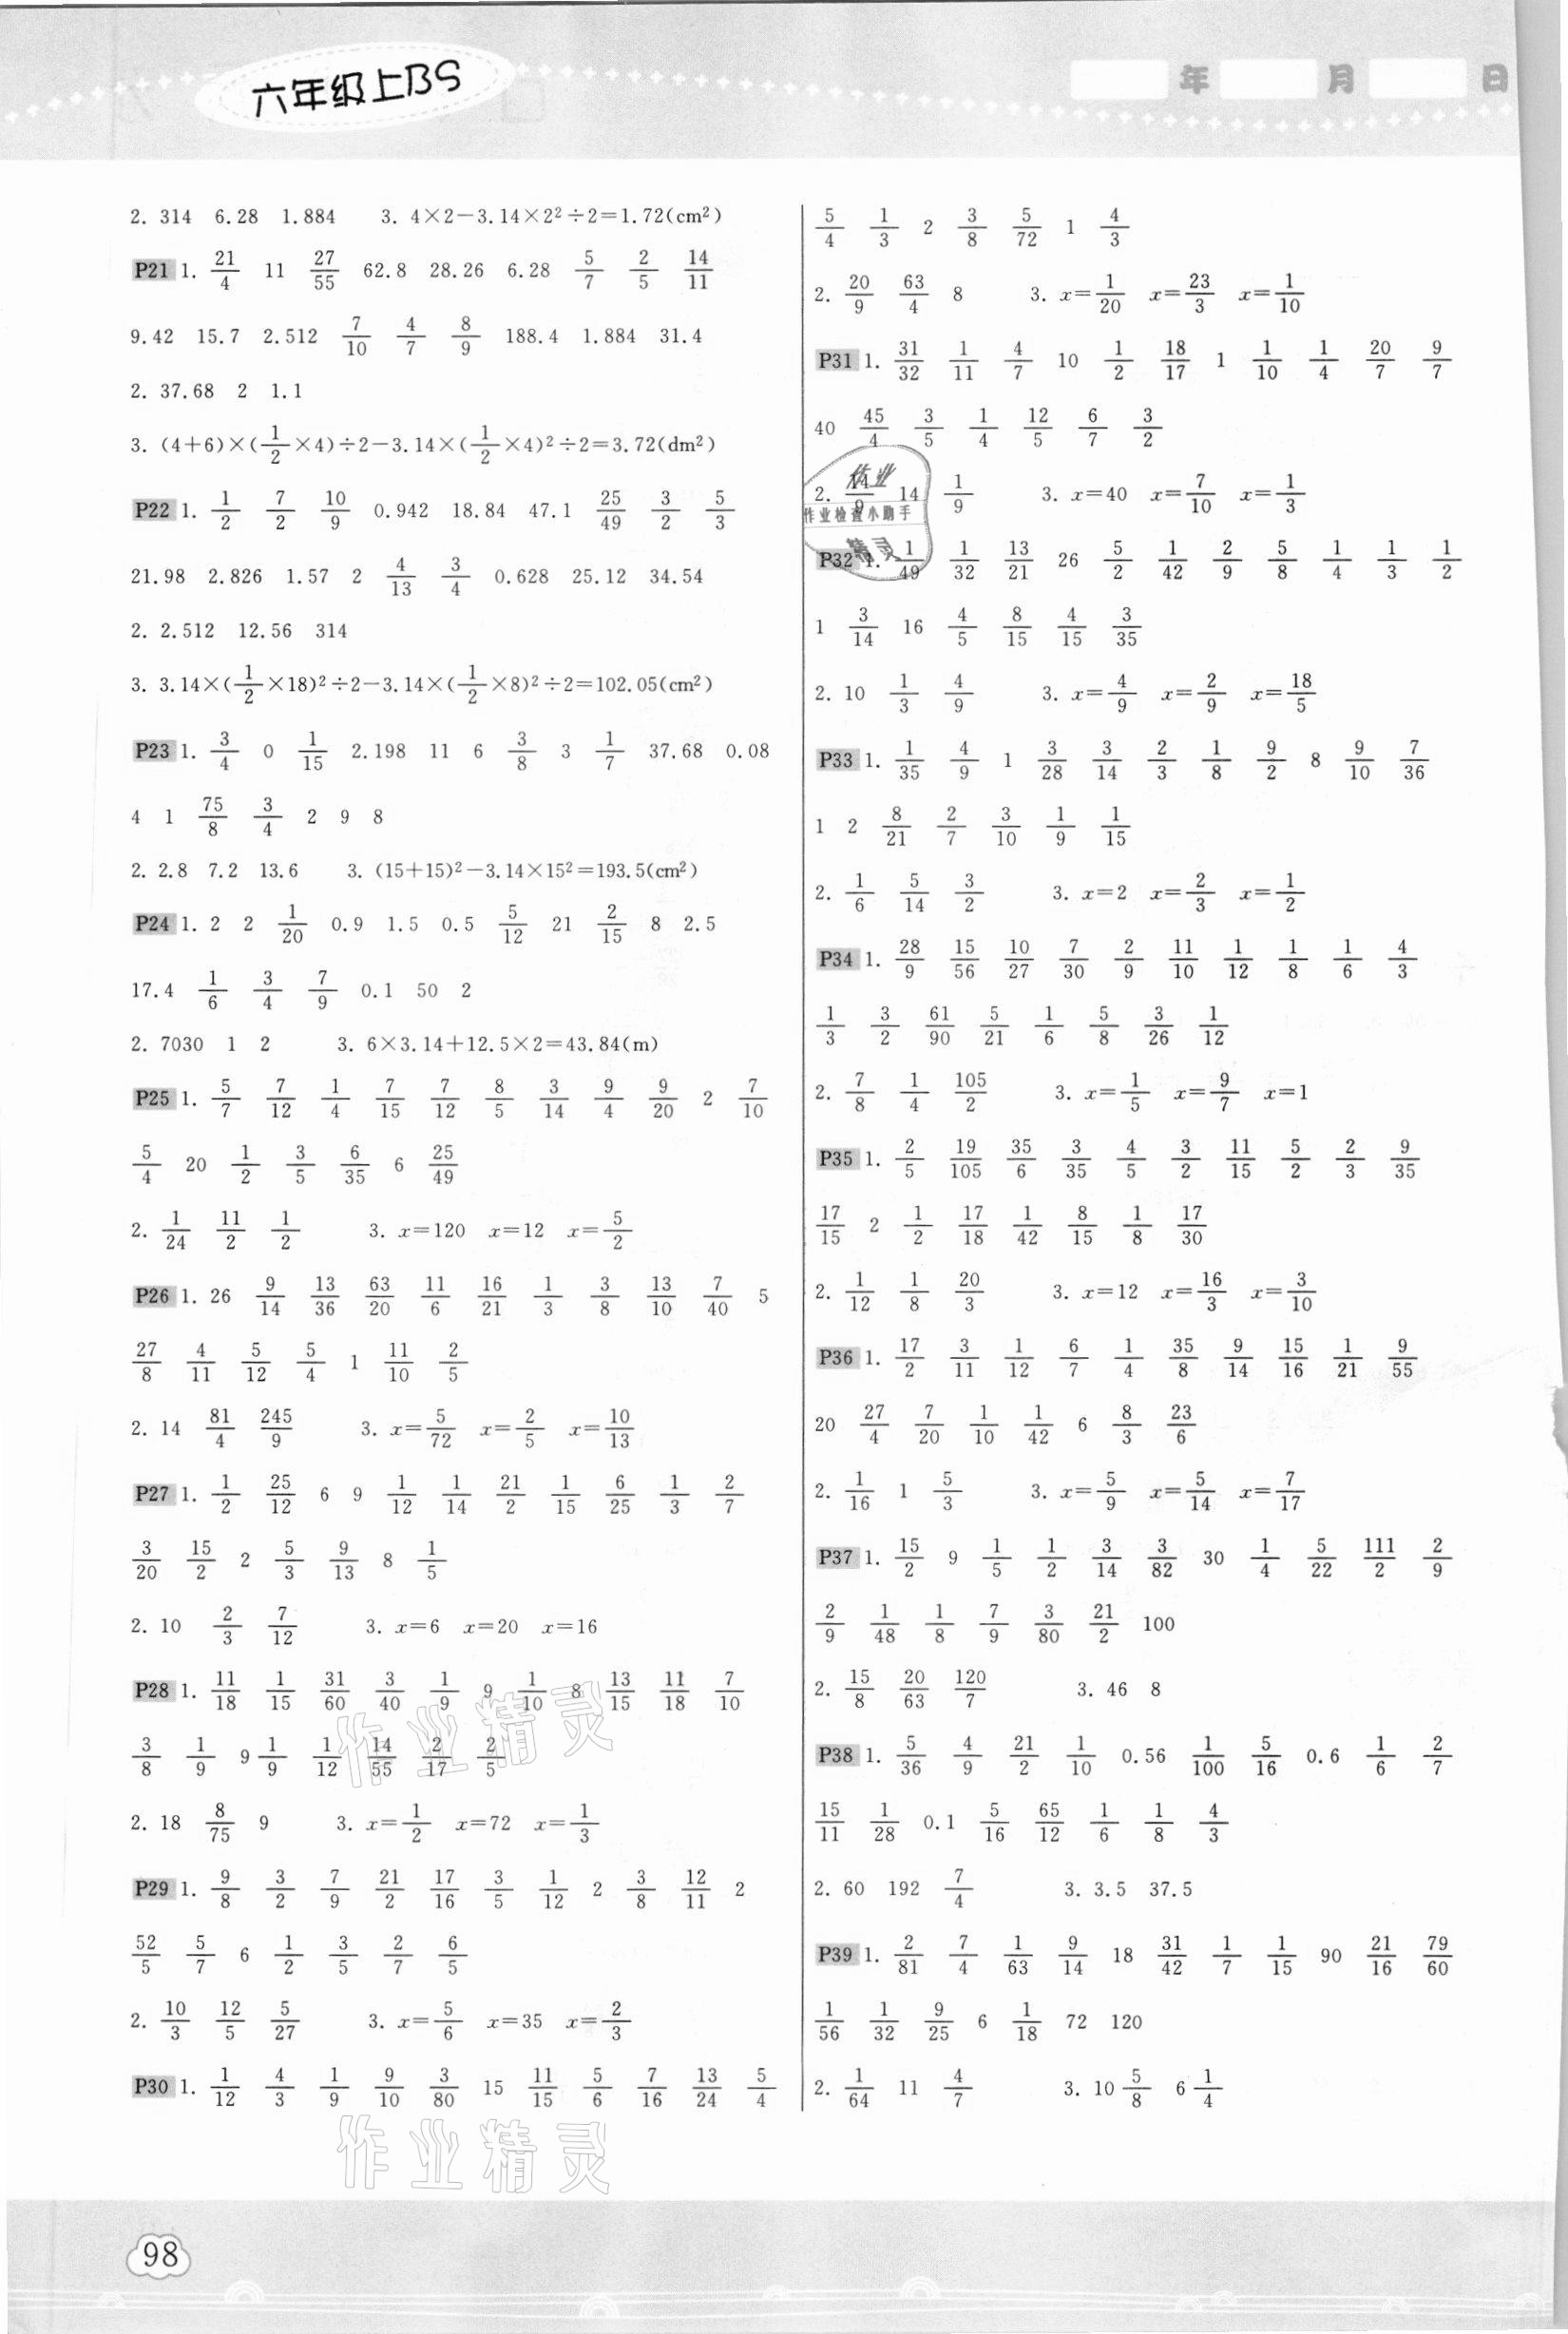 六年级上BS
年 月 日
2. 314 6.28 1.884 3. 4×2-3.14×2²÷2=1.72(cm²)
P21 1. 21/4 11 27/55 62.8 28.26 6.28 5/7 2/5 14/11
9.42 15.7 2.512 7/10 4/7 8/9 188.4 1.884 31.4
2. 37.68 2 1.1
3. (4+6)×(1/2×4)÷2-3.14×(1/2×4)²÷2=3.72(dm²)
P22 1. 1/2 7/2 10/9 0.942 18.84 47.1 25/49 3/2 5/3
21.98 2.826 1.57 2 4/13 3/4 0.628 25.12 34.54
2. 2.512 12.56 314
3. 3.14×(1/2×18)²÷2-3.14×(1/2×8)²÷2=102.05(cm²)
P23 1. 3/4 0 1/15 2.198 11 6 3/8 3 1/7 37.68 0.08
4 1 75/8 3/4 2 9 8
2. 2.8 7.2 13.6 3. (15+15)²-3.14×15²=193.5(cm²)
P24 1. 2 2 1/20 0.9 1.5 0.5 5/12 21 2/15 8 2.5
17.4 1/6 3/4 7/9 0.1 50 2
2. 7030 1 2 3. 6×3.14+12.5×2=43.84(m)
P25 1. 5/7 7/12 1/4 7/15 7/12 8/5 3/14 9/4 9/20 2 7/10
5/4 20 1/2 3/5 6/35 6 25/49
2. 1/24 11/2 1/2 3. x=120 x=12 x=5/2
P26 1. 26 9/14 13/36 63/20 11/6 16/21 1/3 3/8 13/10 7/40 5
27/8 4/11 5/12 5/4 1 11/10 2/5
2. 14 81/4 245/9 3. x=5/72 x=2/5 x=10/13
P27 1. 1/2 25/12 6 9 1/12 1/14 21/2 1/15 6/25 1/3 2/7
3/20 15/2 2 5/3 9/13 8 1/5
2. 10 2/3 7/12 3. x=6 x=20 x=16
P28 1. 11/18 1/15 31/60 3/40 1/9 9 1/10 8 13/15 11/18 7/10
3/8 1/9 9 1/9 1/12 14/55 2/17 2/5
2. 18 8/75 9 3. x=1/2 x=72 x=1/3
P29 1. 9/8 3/2 7/9 21/2 17/16 3/5 1/12 2 3/8 12/11 2
52/5 5/7 6 1/2 3/5 2/7 6/5
2. 10/3 12/5 5/27 3. x=5/6 x=35 x=2/3
P30 1. 1/12 4/3 1/9 9/10 3/80 15 11/15 5/6 7/16 13/24 5/4
5/4 1/3 2 3/8 5/72 1 4/3
2. 20/9 63/4 8 3. x=1/20 x=23/3 x=1/10
P31 1. 31/32 1/11 4/7 10 1/2 18/17 1 1/10 1/4 20/7 9/7
40 45/4 3/5 1/4 12/5 6/7 3/2
2. 14/9 14 1/9 3. x=40 x=7/10 x=1/3
作业
作业检查小助手
精灵
P32 1. 1/49 1/32 13/21 26 5/2 1/42 2/9 5/8 1/4 1/3 1/2
1 3/14 16 4/5 8/15 4/15 3/35
2. 10 1/3 4/9 3. x=4/9 x=2/9 x=18/5
P33 1. 1/35 4/9 1 3/28 3/14 2/3 1/8 9/2 8 9/10 7/36
1 2 8/21 2/7 3/10 1/9 1/15
2. 1/6 5/14 3/2 3. x=2 x=2/3 x=1/2
P34 1. 28/9 15/56 10/27 7/30 2/9 11/10 1/12 1/8 1/6 4/3
1/3 3/2 61/90 5/21 1/6 5/8 3/26 1/12
2. 7/8 1/4 105/2 3. x=1/5 x=9/7 x=1
P35 1. 2/5 19/105 35/6 3/35 4/5 3/2 11/15 5/2 2/3 9/35
17/15 2 1/2 17/18 1/42 8/15 1/8 17/30
2. 1/12 1/8 20/3 3. x=12 x=16/3 x=3/10
P36 1. 17/2 3/11 1/12 6/7 1/4 35/8 9/14 15/16 1/21 9/55
20 27/4 7/20 1/10 1/42 6 8/3 23/6
2. 1/16 1 5/3 3. x=5/9 x=5/14 x=7/17
P37 1. 15/2 9 1/5 1/2 3/14 3/82 30 1/4 5/22 111/2 2/9
2/9 1/48 1/8 7/9 3/80 21/2 100
2. 15/8 20/63 120/7 3. 46 8
P38 1. 5/36 4/9 21/2 1/10 0.56 1/100 5/16 0.6 1/6 2/7
15/11 1/28 0.1 5/16 65/12 1/6 1/8 4/3
2. 60 192 7/4 3. 3.5 37.5
P39 1. 2/81 7/4 1/63 9/14 18 31/42 1/7 1/15 90 21/16 79/60
1/56 1/32 9/25 6 1/18 72 120
2. 1/64 11 4/7 3. 10 5/8 6 1/4
作业精灵
作业精灵
98